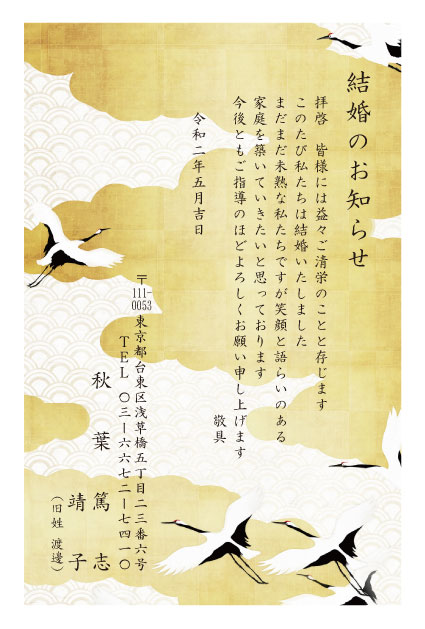 結婚のお知らせ
拝啓　皆様には益々ご清栄のことと存じます
このたび私たちは結婚いたしました
まだまだ未熟な私たちですが笑顔と語らいのある
家庭を築いていきたいと思っております
今後ともご指導のほどよろしくお願い申し上げます
敬具
令和二年五月吉日
〒111-0053
東京都台東区浅草橋五丁目二三番六号
TEL 〇三ー六六七二ー七四一〇
秋葉　篤志
靖子
（旧姓 渡邊）